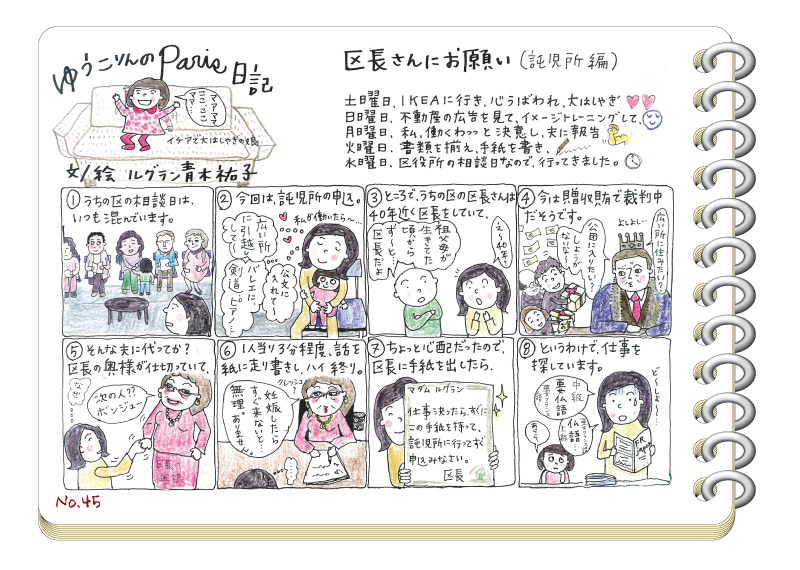 ゆうこりんのParis日記
ママママ
ここここ
ママ…
イケアで大はしゃぎの娘
文/絵 ルグラン青木祐子
区長さんにお願い(託児所編)
土曜日、IKEAに行き、心うばわれ、大はしゃぎ
日曜日、不動産の広告を見て、イメージトレーニングして、
月曜日、私、働くわっっと決意し、夫に報告
火曜日、書類を揃え、手紙を書き、
水曜日、区役所の相談日なので、行ってきました。
①うちの区の相談日は、
いつも混んでいます。
②今回は、託児所の申込。
私が働いたら〜…
広い所
に引越し
して(
公文に
入れて〜
バレエに、
剣道、ピアノ…
③ところで、うちの区の区長さんは
40年近く区長をしていて、
祖父母が
生きてた
頃から
ず〜と、
区長だよ
えっ40年?
④今は贈収賄で裁判中
だそうです。
よしよし…
広い所に住みたい?
公団に入りたい?
しょうが
ないな〜
⑤そんな夫に代ってか?
区長の奥様が仕切っていて、
なぜ…
次の人??
ボンジュー
区長の
奥様
⑥1人当り3分程度、話を
紙に走り書きし、ハイ終り。
クレッシュ?
妊娠したら
すぐ来ないと…
無理。ありません
⑦ちょっと心配だったので、
区長に手紙を出したら、
マダム ルグラン
仕事決ったら、すぐに
この手紙を持って、
託児所に行ってすぐ
申込みなさい。
区長
⑧というわけで、仕事を
探しています。
ど〜しよ〜
中級
要仏語
仏語
上級
あらら
No.45